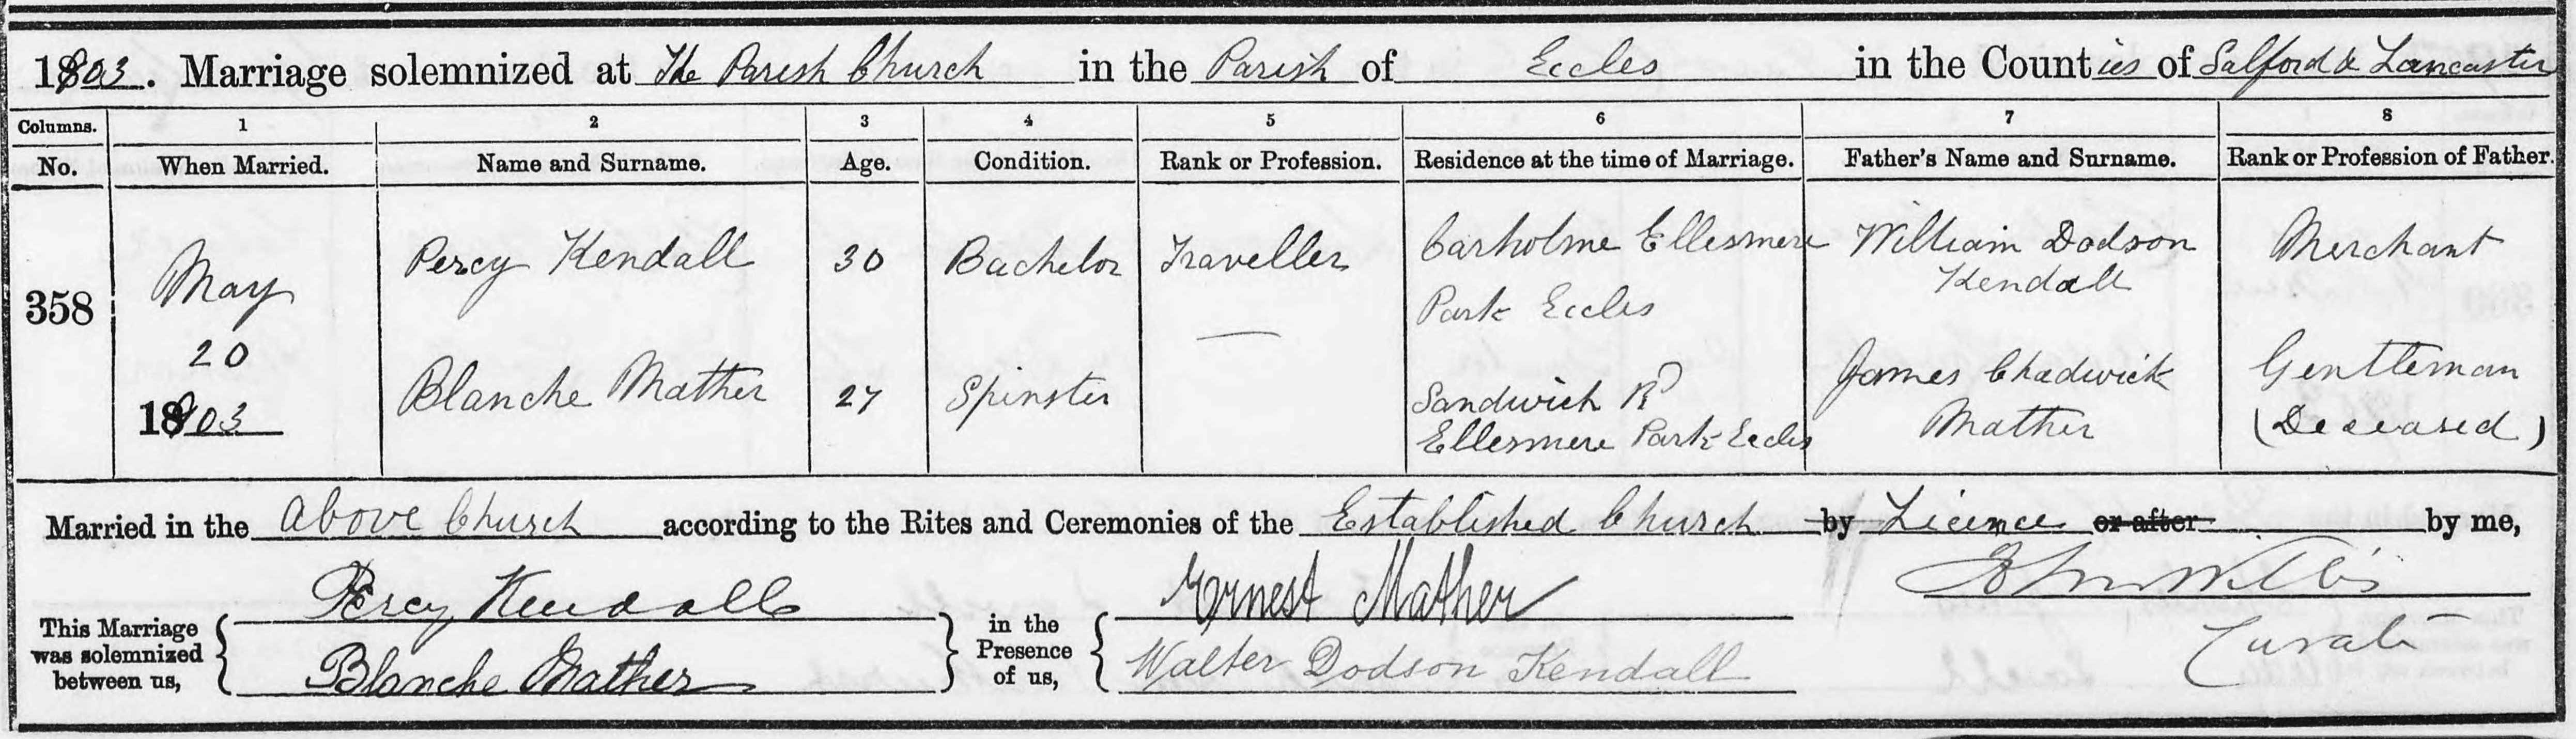 1903. Marriage solemnized at The Parish Church in the Parish of Eccles in the Counties of Salford & Lancaster
Columns. 1 2 3 4 5 6 7 8
No. When Married. Name and Surname. Age. Condition. Rank or Profession. Residence at the time of Marriage. Father's Name and Surname. Rank or Profession of Father.
358
May
20
1903
Percy Kendall 30 Bachelor Traveller
Carholme Ellesmere
Park Eccles
William Dodson
Kendall
Merchant
Blanche Mather 27 Spinster —
Sandwich Rd
Ellesmere Park Eccles
James Chadwick
Mather
Gentleman
(Deceased)
Married in the above Church according to the Rites and Ceremonies of the Established Church by Licence or after by me,
This Marriage
was solemnized
between us,
Percy Kendall
Blanche Mather
in the
Presence
of us,
Ernest Mather
Walter Dodson Kendall
Curate